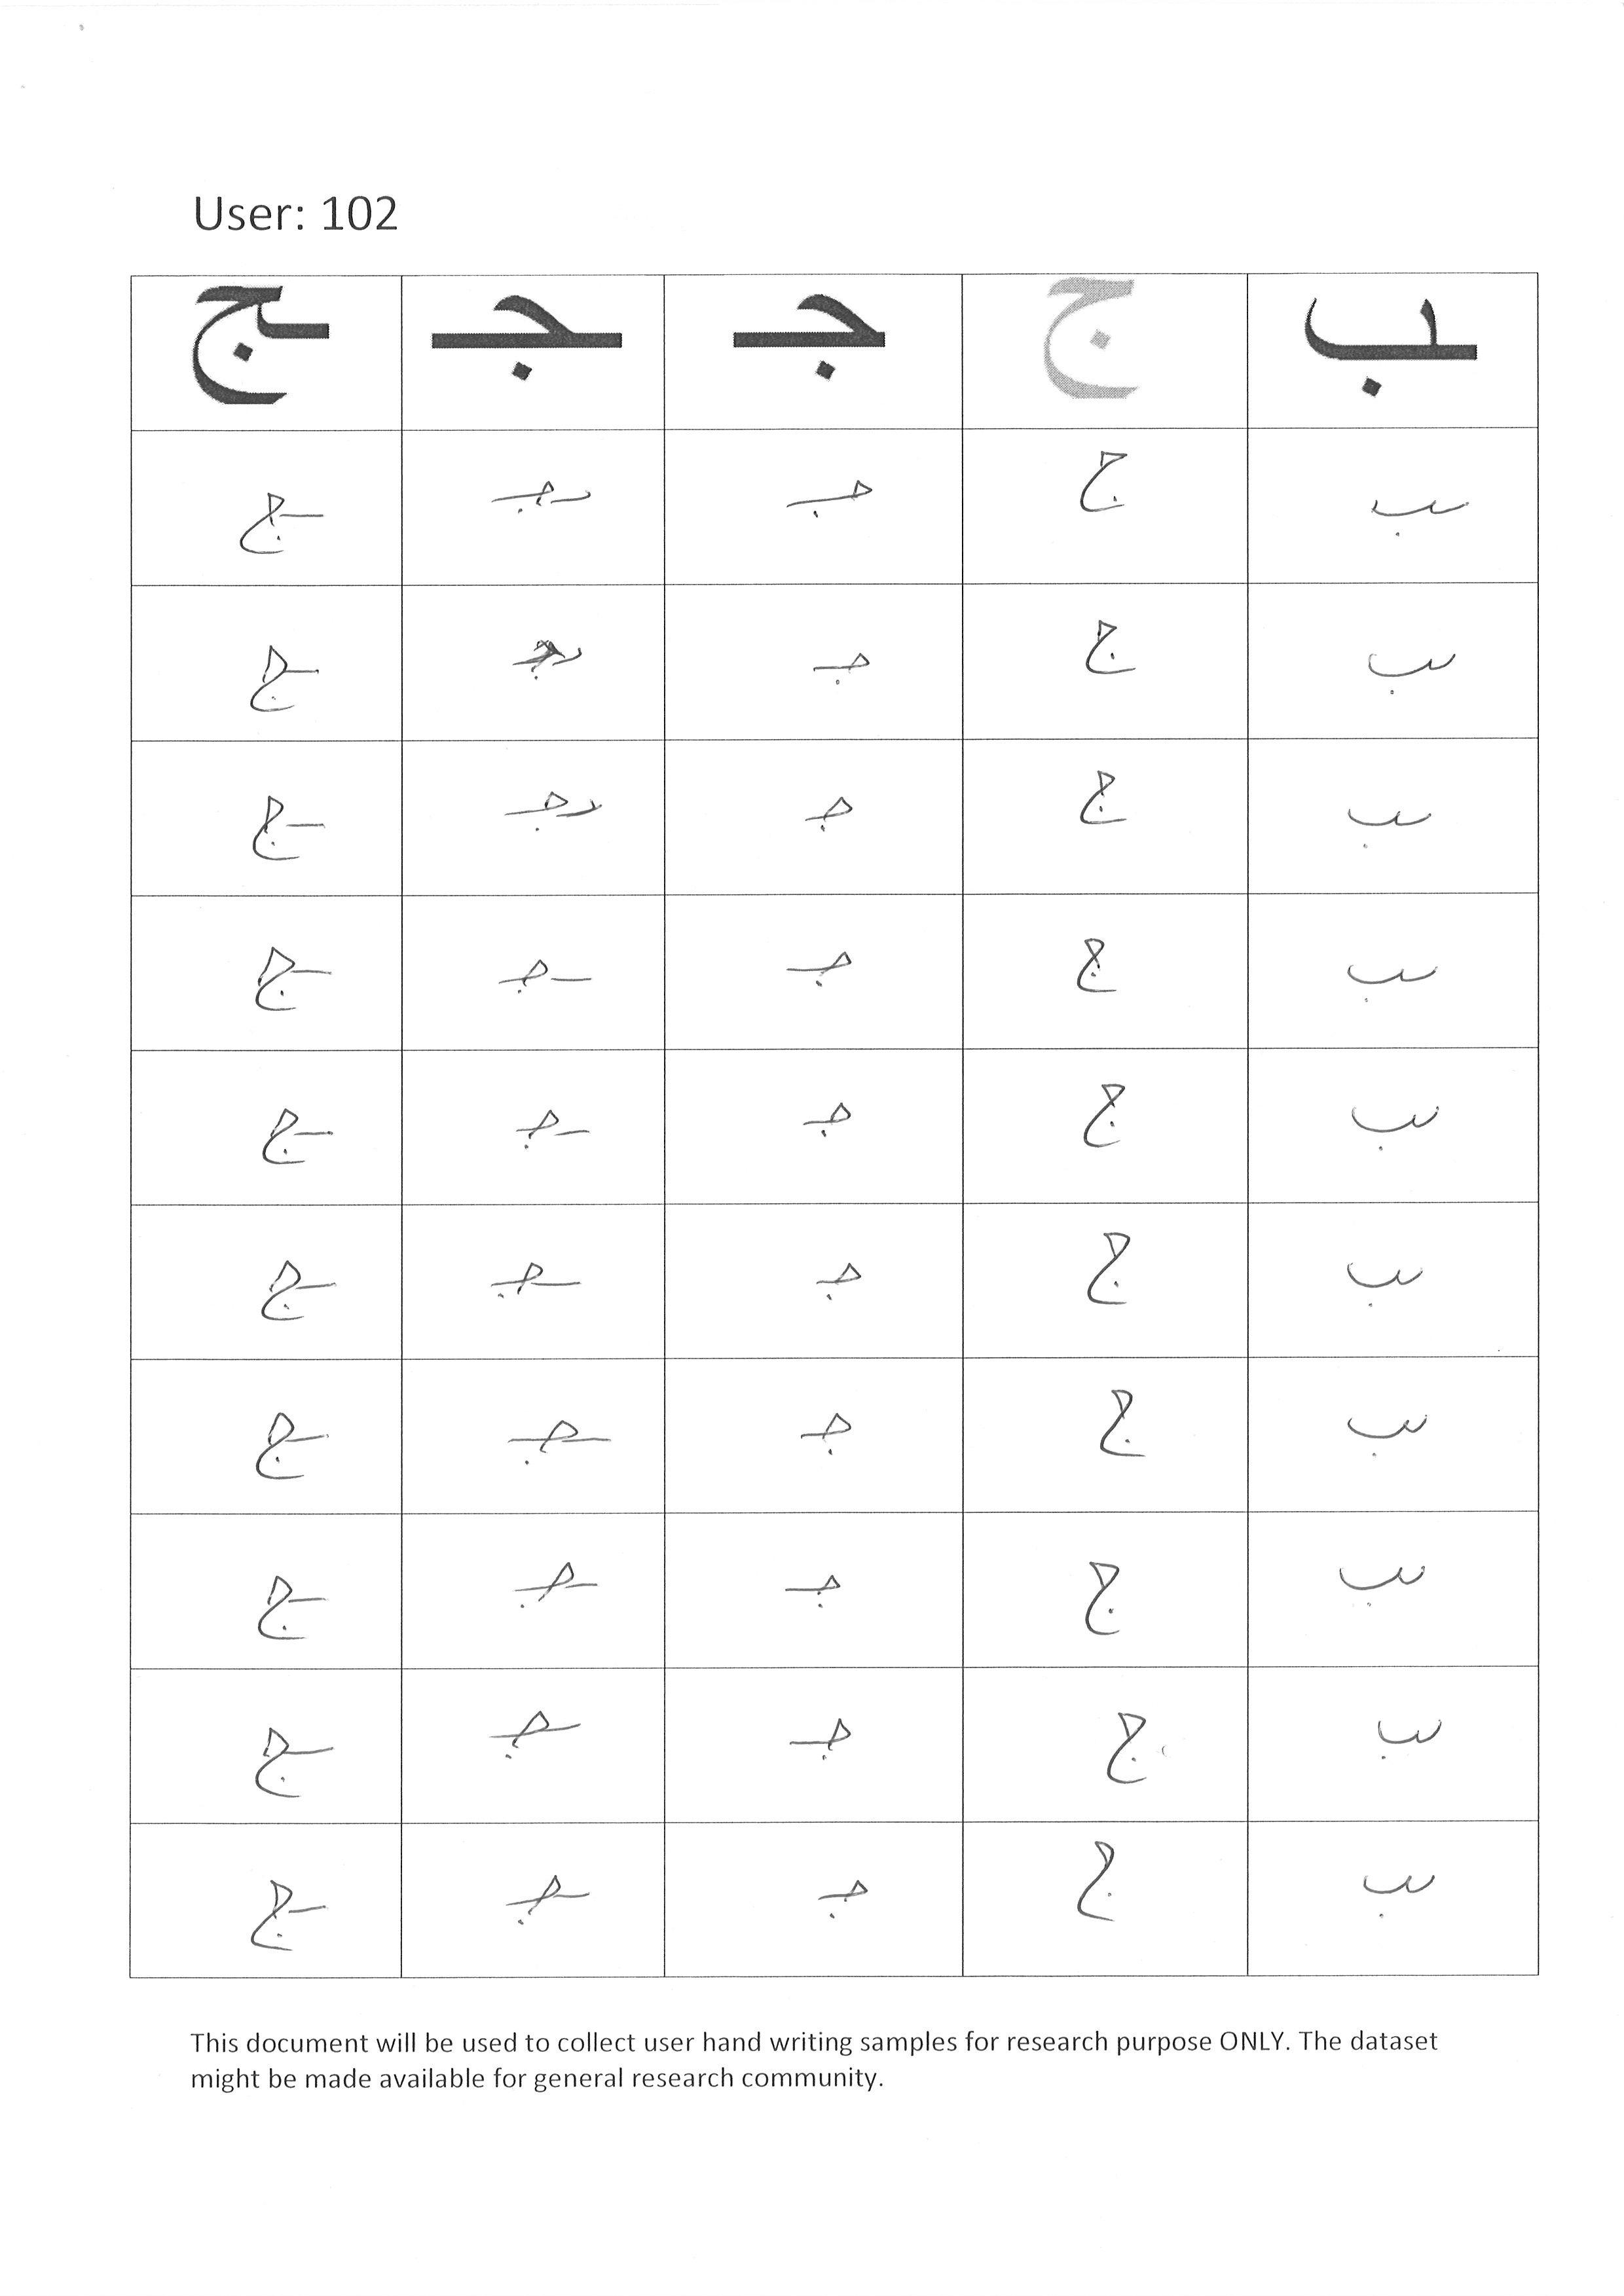 User: 102
ـب ج جـ ـجـ ـج
ـب ج جـ ـجـ ـج
ـب ج جـ ـج
ـب ج جـ ـجـ ـج
ـب ج جـ ـجـ ـج
ـب ج جـ ـجـ ـج
ـب ج جـ ـجـ ـج
ـب ج جـ ـجـ ـج
ـب ج جـ ـجـ ـج
ـب ج جـ ـجـ ـج
ـب ج جـ ـجـ ـج
This document will be used to collect user hand writing samples for research purpose ONLY. The dataset
might be made available for general research community.